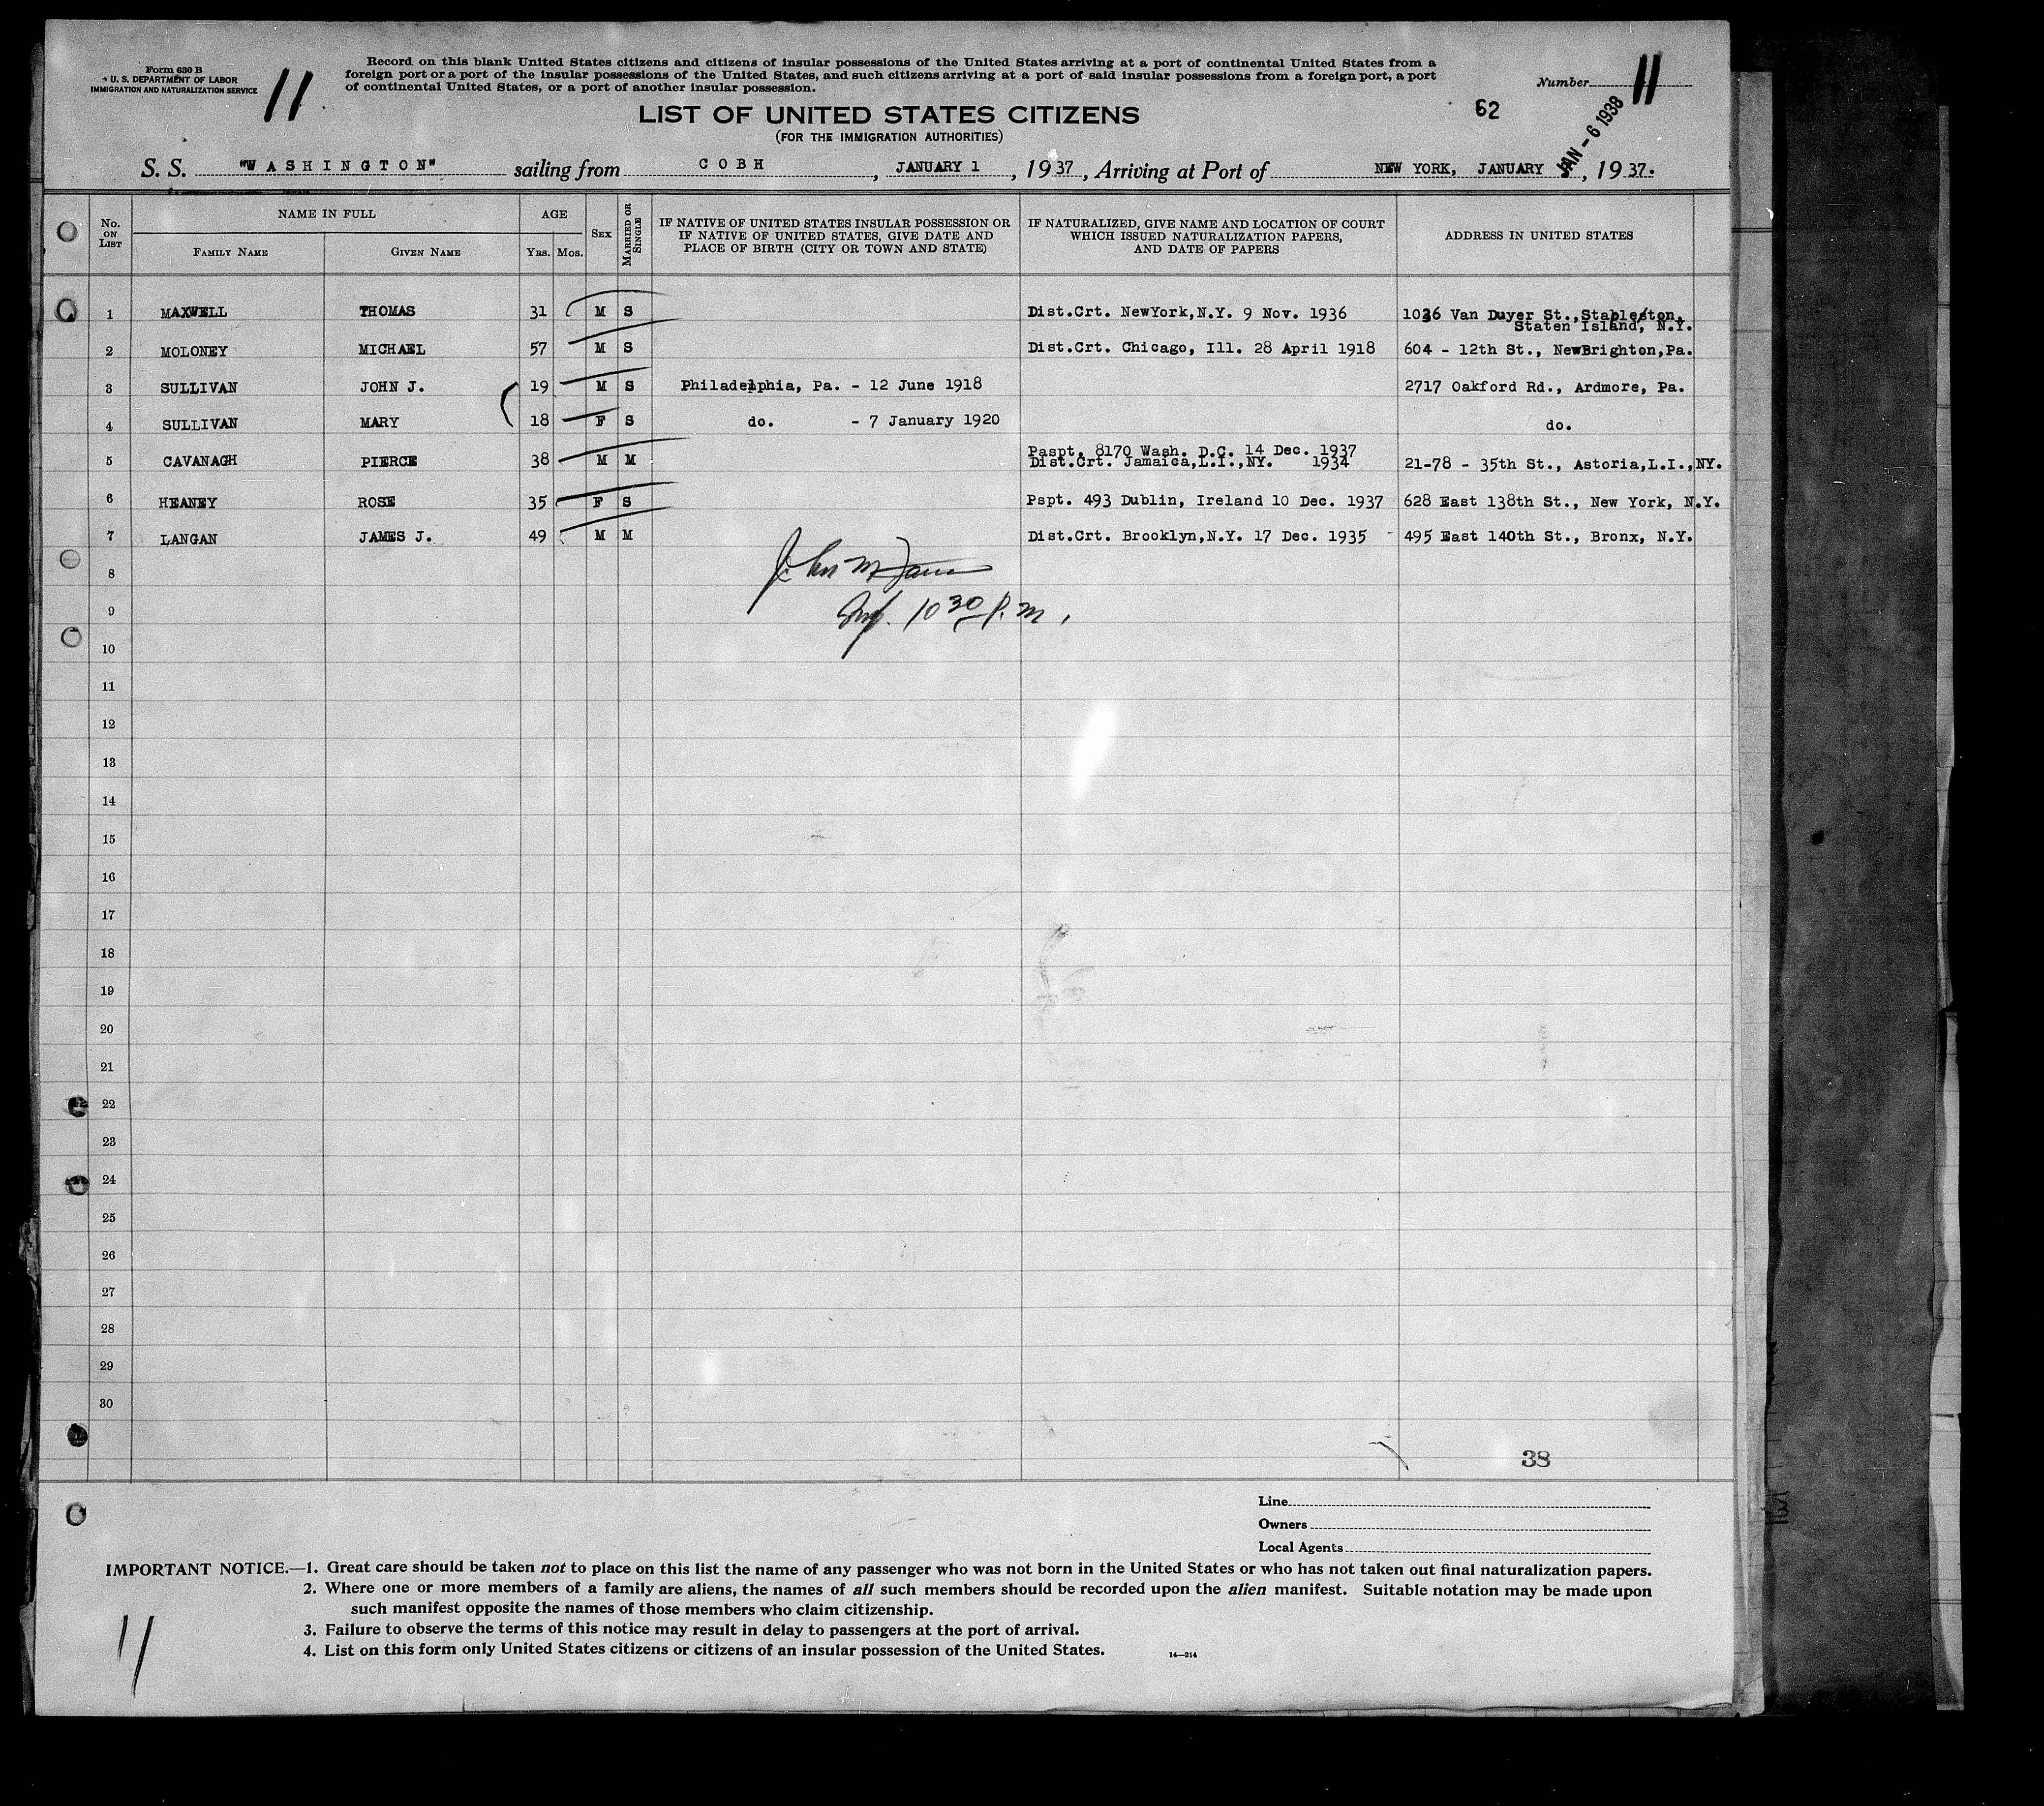 Form 630 B
U. S. DEPARTMENT OF LABOR
IMMIGRATION AND NATURALIZATION SERVICE
11
Record on this blank United States citizens and citizens of insular possessions of the United States arriving at a port of continental United States from a
foreign port or a port of the insular possessions of the United States, and such citizens arriving at a port of said insular possessions from a foreign port, a port
of continental United States, or a port of another insular possession.
Number 11
LIST OF UNITED STATES CITIZENS
62
JAN - 6 1938
(FOR THE IMMIGRATION AUTHORITIES)
S. S. "WASHINGTON" sailing from COBH, JANUARY 1, 1937, Arriving at Port of NEW YORK, JANUARY , 1937.
No. ON LIST
NAME IN FULL
FAMILY NAME GIVEN NAME
AGE
YRS. MOS.
SEX
MARRIED OR SINGLE
IF NATIVE OF UNITED STATES INSULAR POSSESSION OR
IF NATIVE OF UNITED STATES, GIVE DATE AND
PLACE OF BIRTH (CITY OR TOWN AND STATE)
IF NATURALIZED, GIVE NAME AND LOCATION OF COURT
WHICH ISSUED NATURALIZATION PAPERS,
AND DATE OF PAPERS
ADDRESS IN UNITED STATES
1 MAXWELL THOMAS 31 M S Dist.Crt. NewYork,N.Y. 9 Nov. 1936 1036 Van Duyer St.,Stapleton,
Staten Island, N.Y.
2 MOLONEY MICHAEL 57 M S Dist.Crt. Chicago, Ill. 28 April 1918 604 - 12th St., NewBrighton,Pa.
3 SULLIVAN JOHN J. 19 M S Philadelphia, Pa. - 12 June 1918 2717 Oakford Rd., Ardmore, Pa.
4 SULLIVAN MARY 18 F S do. - 7 January 1920 do.
Paspt. 8170 Wash. D.C. 14 Dec. 1937
5 CAVANAGH PIERCE 38 M M Dist.Crt. Jamaica,L.I.,NY. 1934 21-78 - 35th St., Astoria,L.I.,NY.
6 HEANEY ROSE 35 F S Pspt. 493 Dublin, Ireland 10 Dec. 1937 628 East 138th St., New York, N.Y.
7 LANGAN JAMES J. 49 M M Dist.Crt. Brooklyn,N.Y. 17 Dec. 1935 - 495 East 140th St., Bronx, N.Y.
8
9 10 30 P.M.
10
11
12
13
14
15
16
17
18
19
20
21
22
23
24
25
26
27
28
29
30
38
Line
Owners
Local Agents
IMPORTANT NOTICE.—1. Great care should be taken not to place on this list the name of any passenger who was not born in the United States or who has not taken out final naturalization papers.
2. Where one or more members of a family are aliens, the names of all such members should be recorded upon the alien manifest. Suitable notation may be made upon
such manifest opposite the names of those members who claim citizenship.
3. Failure to observe the terms of this notice may result in delay to passengers at the port of arrival.
4. List on this form only United States citizens or citizens of an insular possession of the United States.
14—214
11